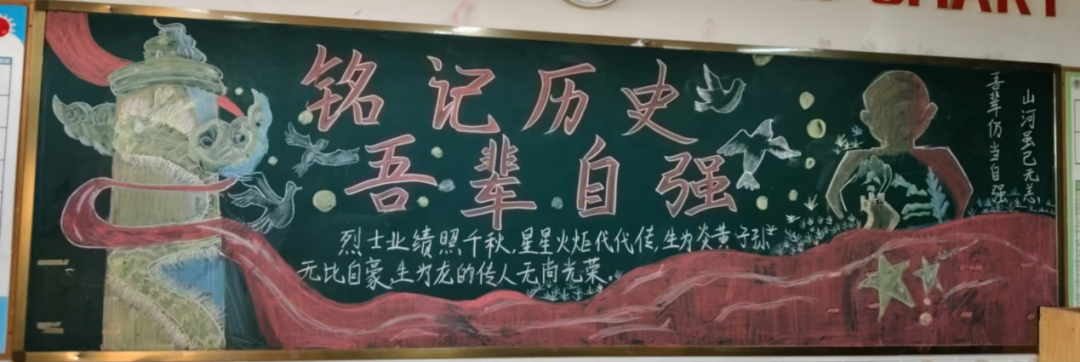 铭记历史
吾辈自强
烈士业绩照千秋,星星火炬代代传,生为炎黄子孙
无比自豪,生为龙的传人无尚光荣。
山河虽已无恙
吾辈仍当自强